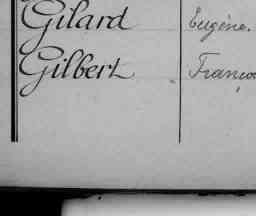 Gilard Eugène.
Gilbert Françoi